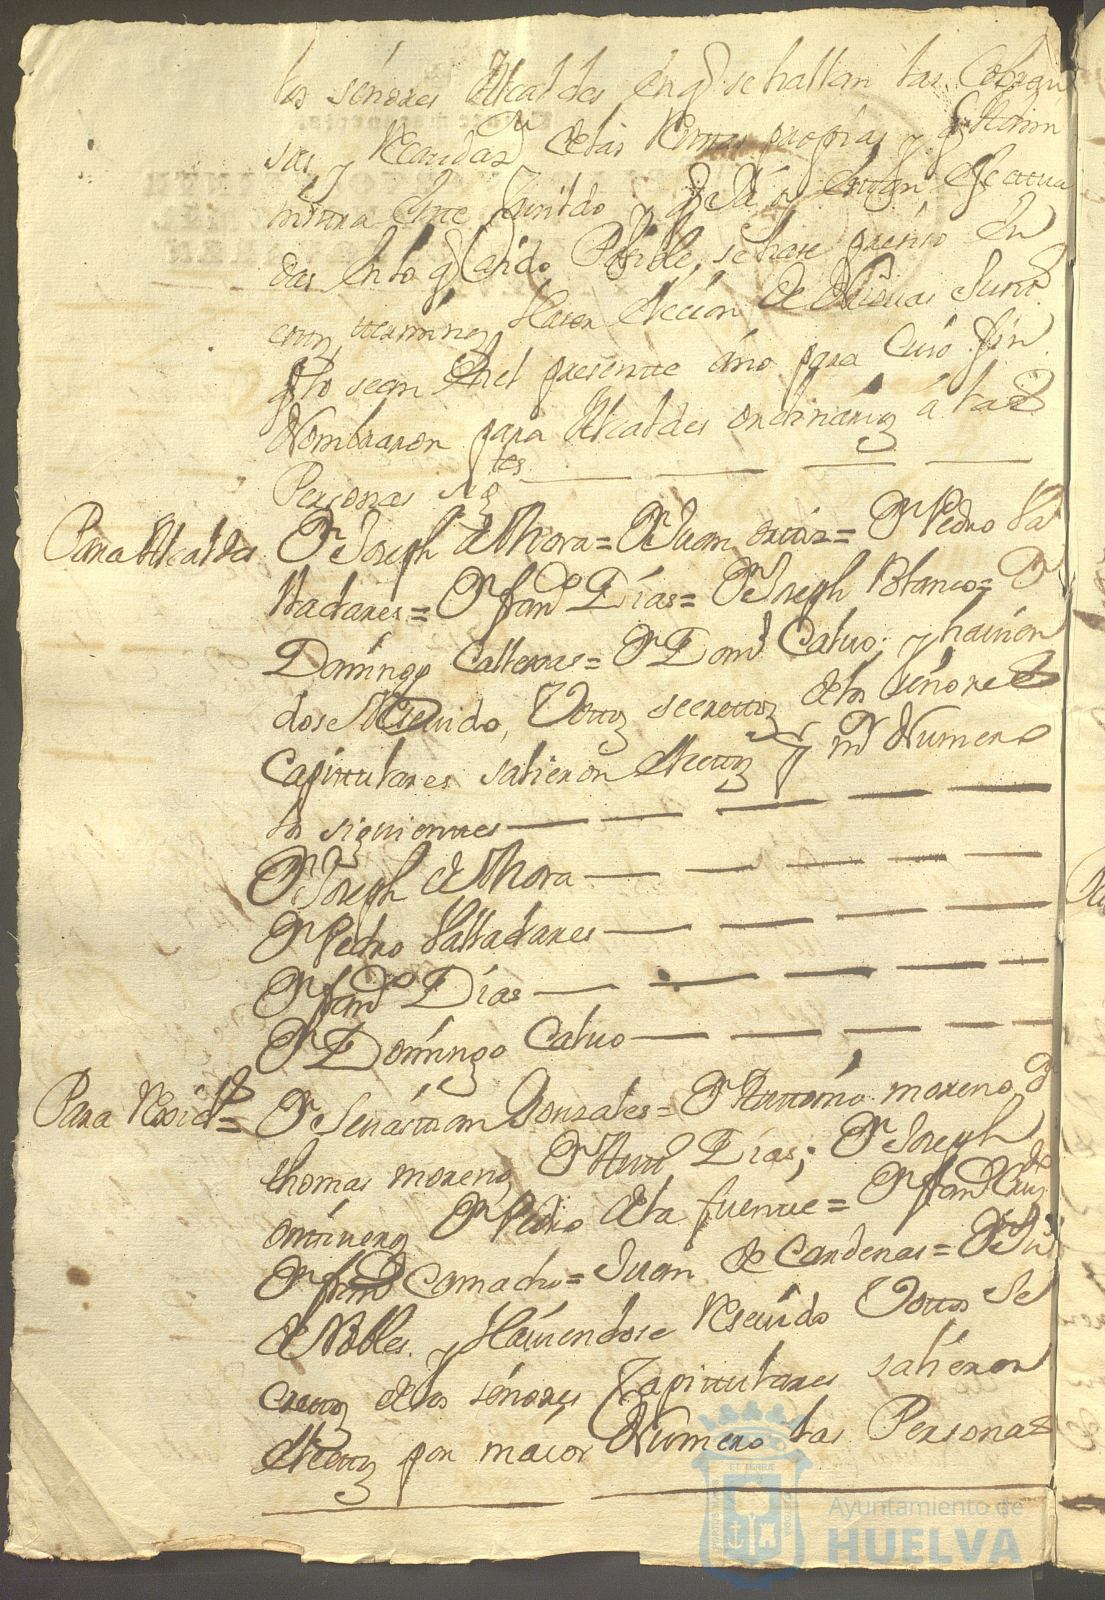 los señores Alcaldes en q. se hallan las Cobran
sas, y Recaudaz.n de las Rentas propias y q. Admi
nistra este Cavildo y q. estan efectua
das en lo q. à sido Posible, se hase presiso En
estos terminos Haser Eleccion de Oficios
q. lo sean En el presente año para Cuio fin
Nombraron para Alcaldes ordinarios â las
Personas sig.tes
Para Alcaldes. Dn. Joseph de Mora = Dn. Juan = Dn. Pedro Va
lladares = Dn. fran.co Dias = Dn. Joseph Blanco = Dn.
Domingo = Dn. Dom.o Calvo; y havien
dose Resevido, Votos secretos de los señores
Capittulares salieron electtos p.r m.r Numero
los siguienttes
Dn. Joseph de Mora
Dn. Pedro Valladares
Dn. fran.co Dias
Dn. Domingo Calvo
Para Rexid.s = Dn. Sevasttian Gonzales = Dn. Anttonio moreno, Dn.
thomas moreno, Dn. Antt.o Dias; Dn. Joseph
Dn. Pedro de la fuentte = Dn. fran.co
Dn. fran.co Camacho = Juan de Cardenas = Dn.
de Robles. y Haviendose Resevido Votos Se
crettos de los señores Capittulares salieron
electtos por maior Numero las Personas
Ayuntamiento de
HUELVA